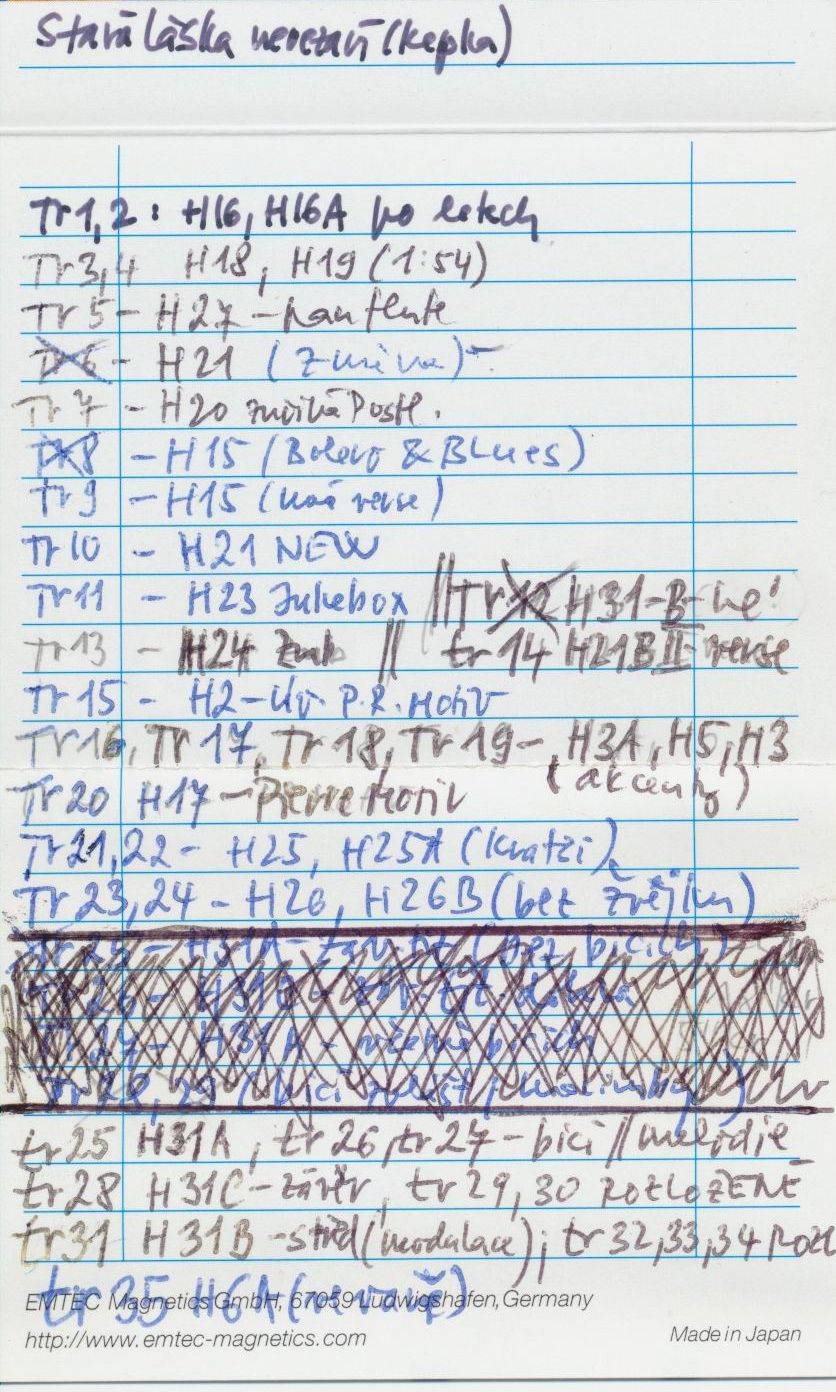 Stará láska nerezaví (Kepka)
Tr 1, 2 : H16, H16A po letech
Tr 3,4 H18, H19 (1:54)
Tr 5 - H27 - panflute
Tr 6 - H21
Tr 7 - H20
Tr 8 - H15 (Bolero & BLues)
Tr 9 - H15 (
Tr 10 - H21 NEW
Tr 11 - H23 Jukebox // Tr 12 H31-B-
Tr 13 - H24 // tr 14 H21B II verse
Tr 15 - H2 - P.R. Motiv
Tr 16, Tr 17, Tr 18, Tr 19 - H3A, H5, H3
(akcenty)
Tr 20 H17 - Pierre Motiv
Tr 21, 22 - H25, H25A (kratší)
Tr 23, 24 - H26, H26B (bez
Tr 25 - H31A - (bez bicích)
Tr 26 - H31B -
Tr 27 - H31A - včetně bicích
Tr 28, 29 (bicí
tr 25 H31A, tr 26, tr 27 - bicí // melodie
tr 28 H31C - závěr, tr 29, 30 ROZLOŽENÉ
tr 31 H31B - střed (modulace); tr 32, 33, 34 ROZL
tr 35 H6A (
EMTEC Magnetics GmbH, 67059 Ludwigshafen, Germany
http://www.emtec-magnetics.com Made in Japan